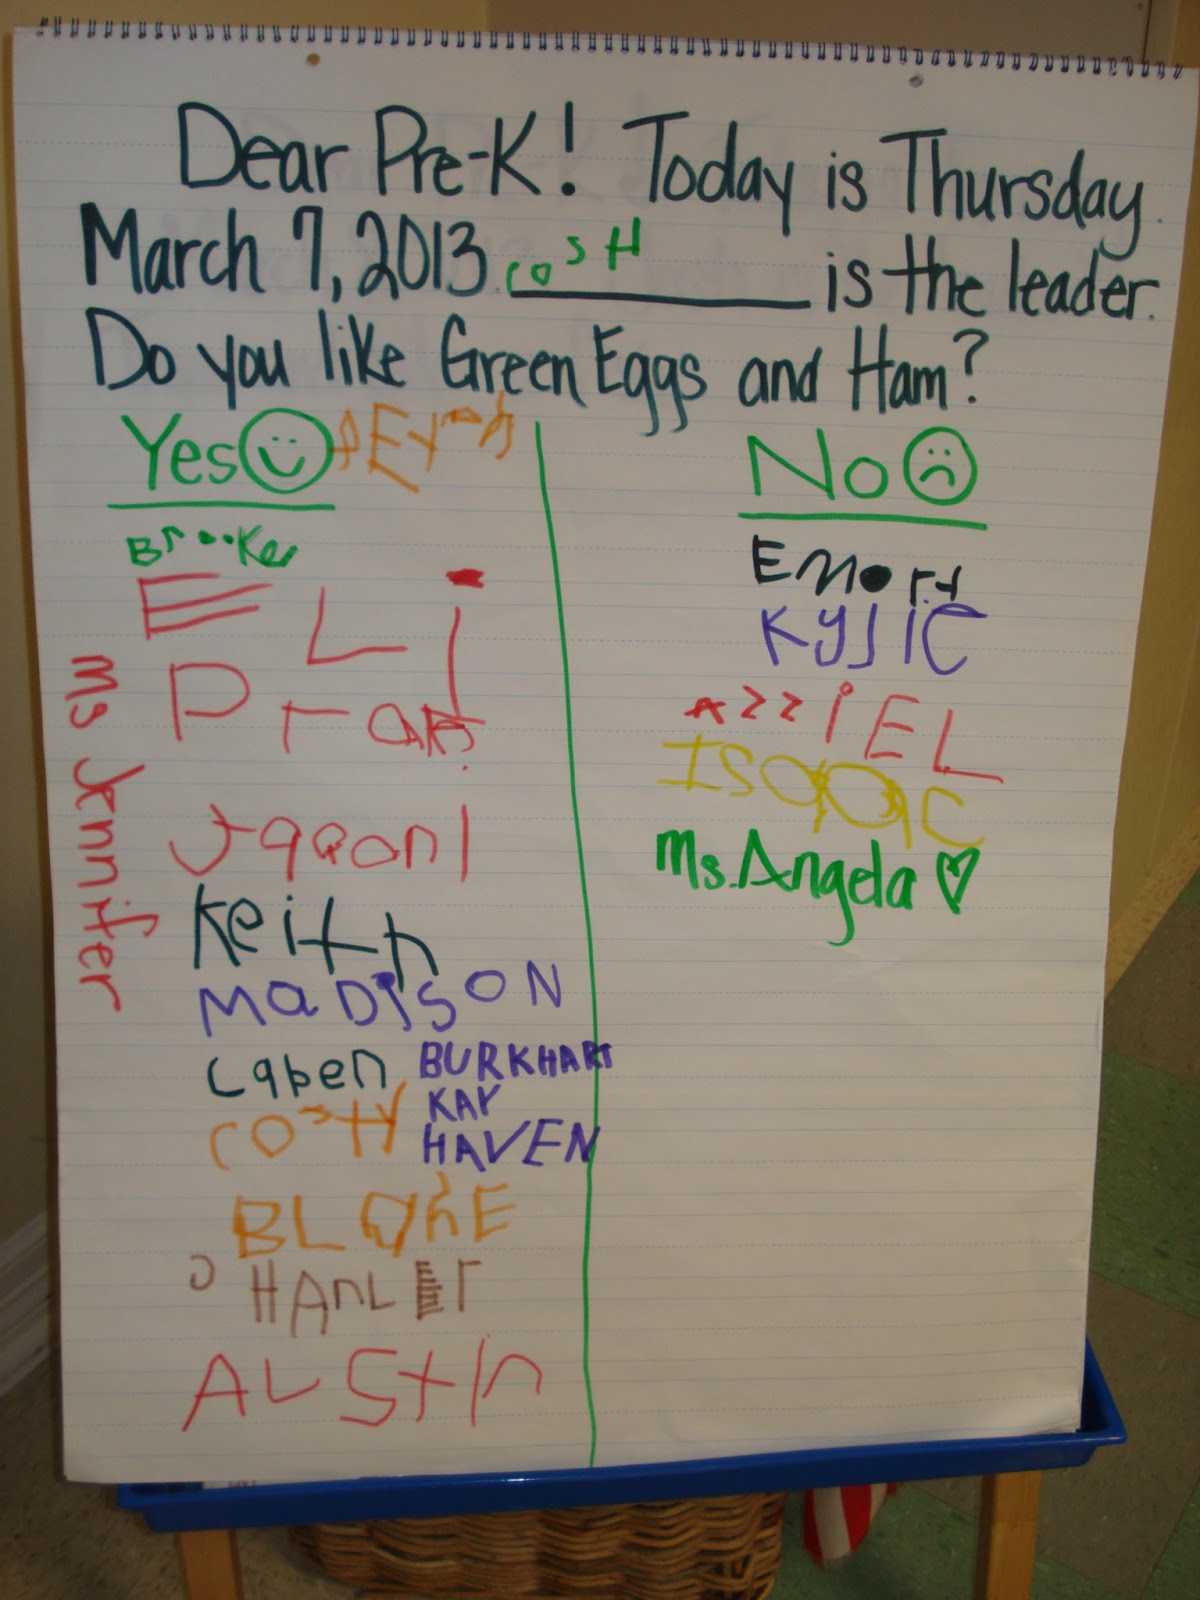 Dear Pre-K! Today is Thursday
March 7, 2013. cosH is the leader.
Do you like Green Eggs and Ham?
Yes
Brooker
ELi
Ms Jennifer
Keith
MaDISON
caben
BURKHART
KAY
HAVEN
cosH
BLake
HAnLEr
AUStin
No
Emort
KYlIC
AzziEL
ISaaC
Ms. Angela